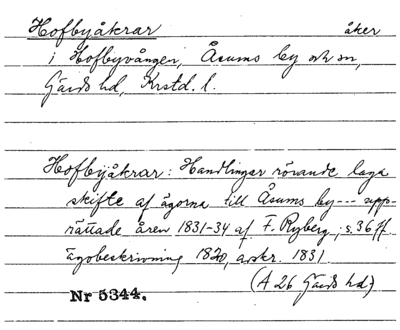 Hofbyåkrar åker
i Hofbyvången, Åsums by och sn,
Gärds hd, Krstd. l.
Hofbyåkrar: Handlingar rörande laga
skifte af ägorna till Åsums by --- upp-
rättade åren 1831-34 af F. Ryberg, s. 36 ff.
Ägobeskrivning 1820, avskr. 1831.
(A 26 Gärds hd)
Nr 5344.